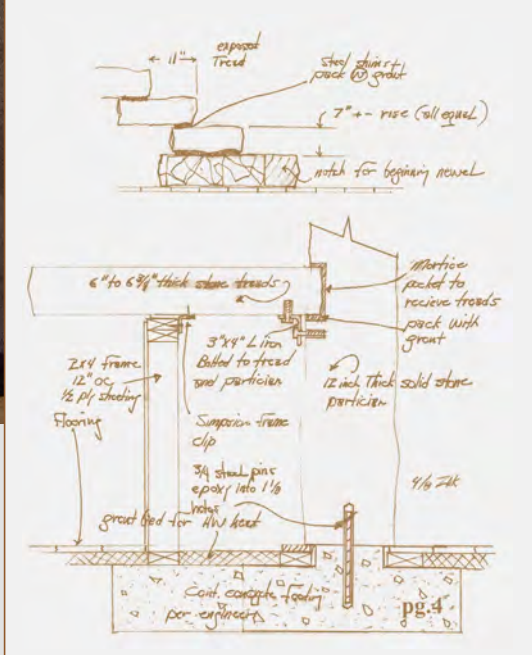 11"
exposed
Tread
steel shims +
pack w grout
7" +- rise (all equal)
notch for beginning newel
6" to 6 3/4" thick stone treads
Mortice
pocket to
recieve treads
pack with
grout
3"x4" L iron
Bolted to tread
and particien
2x4 frame
12" OC
1/2 ply sheeting
12 inch Thick solid stone
particien
Flooring
Simpson frame
clip
3/4 steel pins
epoxy into 1 1/8
holes
grout bed for HW heat
Cont. concrete footing
per engineers
pg.4